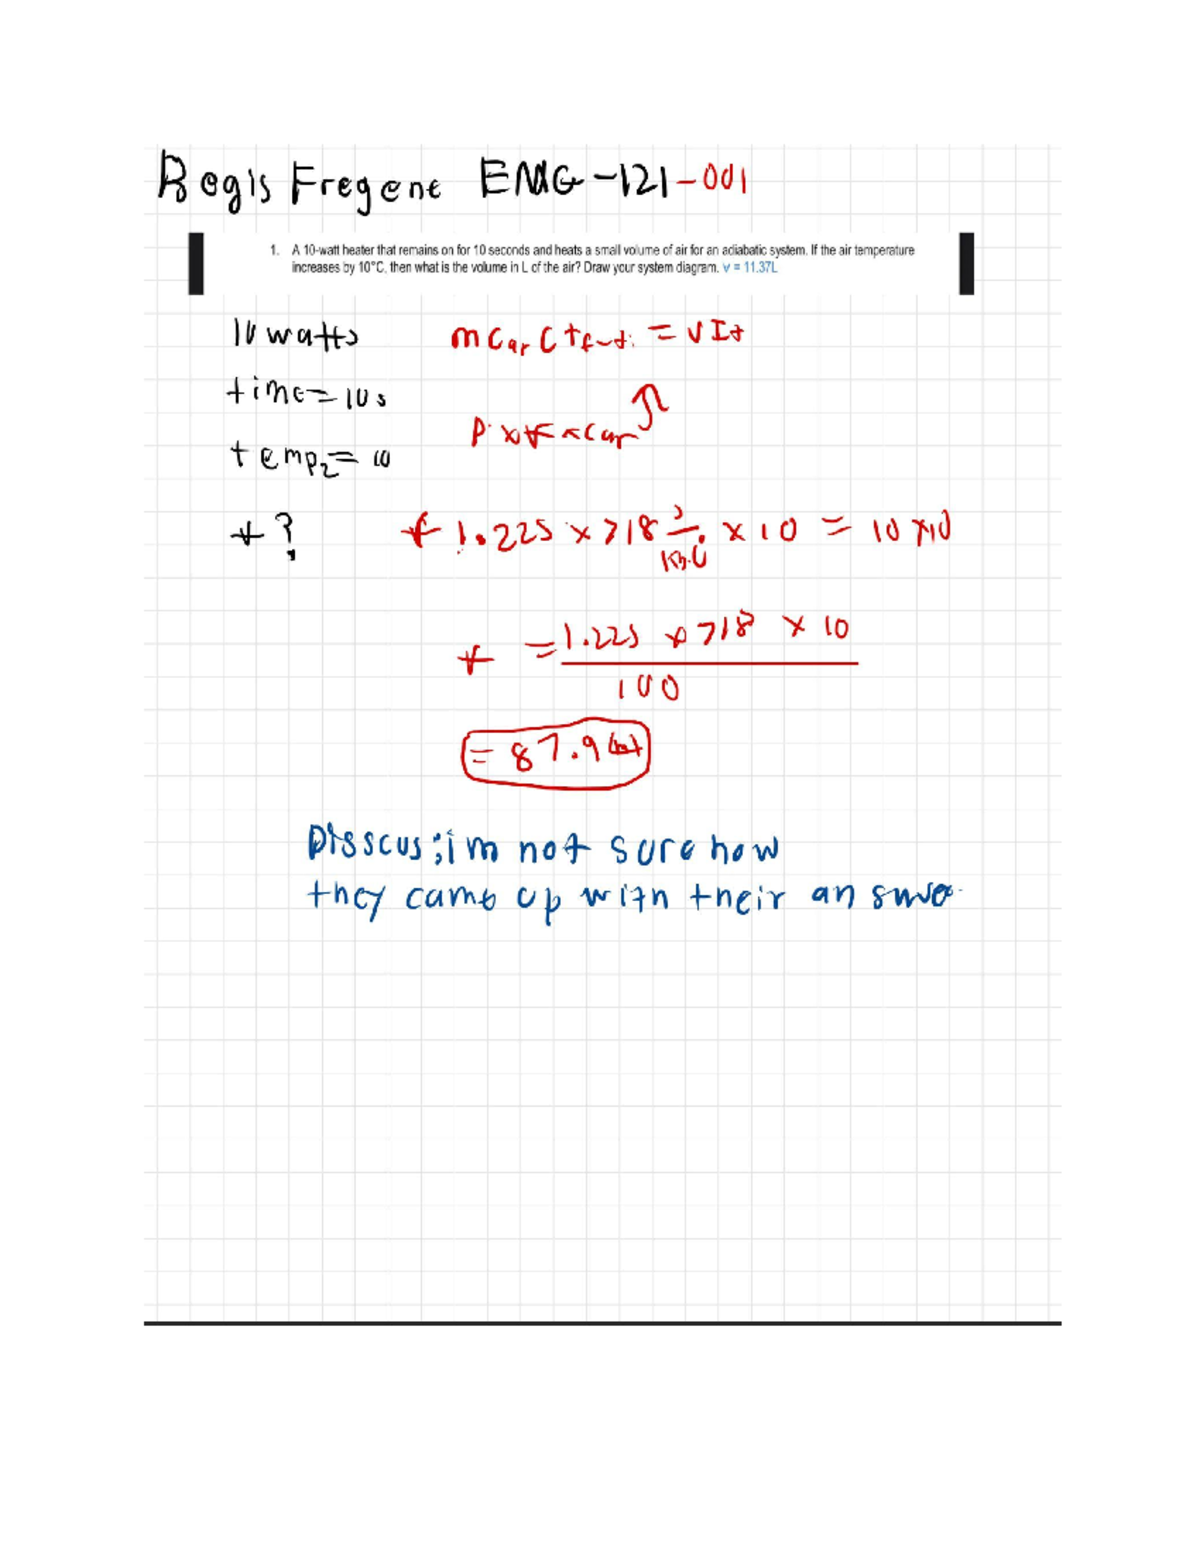 Regis Fregene ENG-121-001
1. A 10-watt heater that remains on for 10 seconds and heats a small volume of air for an adiabatic system. If the air temperature
increases by 10°C, then what is the volume in L of the air? Draw your system diagram. V = 11.37L
10 watts
m Car C tf-ti = V I t
time = 10s
ρ x V x Car
temp2 = 10
V ?
V 1.225 x 718 J/kg.C x 10 = 10 x 10
V = 1.225 x 718 x 10
100
= 87.9
Disscus; im not sure how
they came up with their